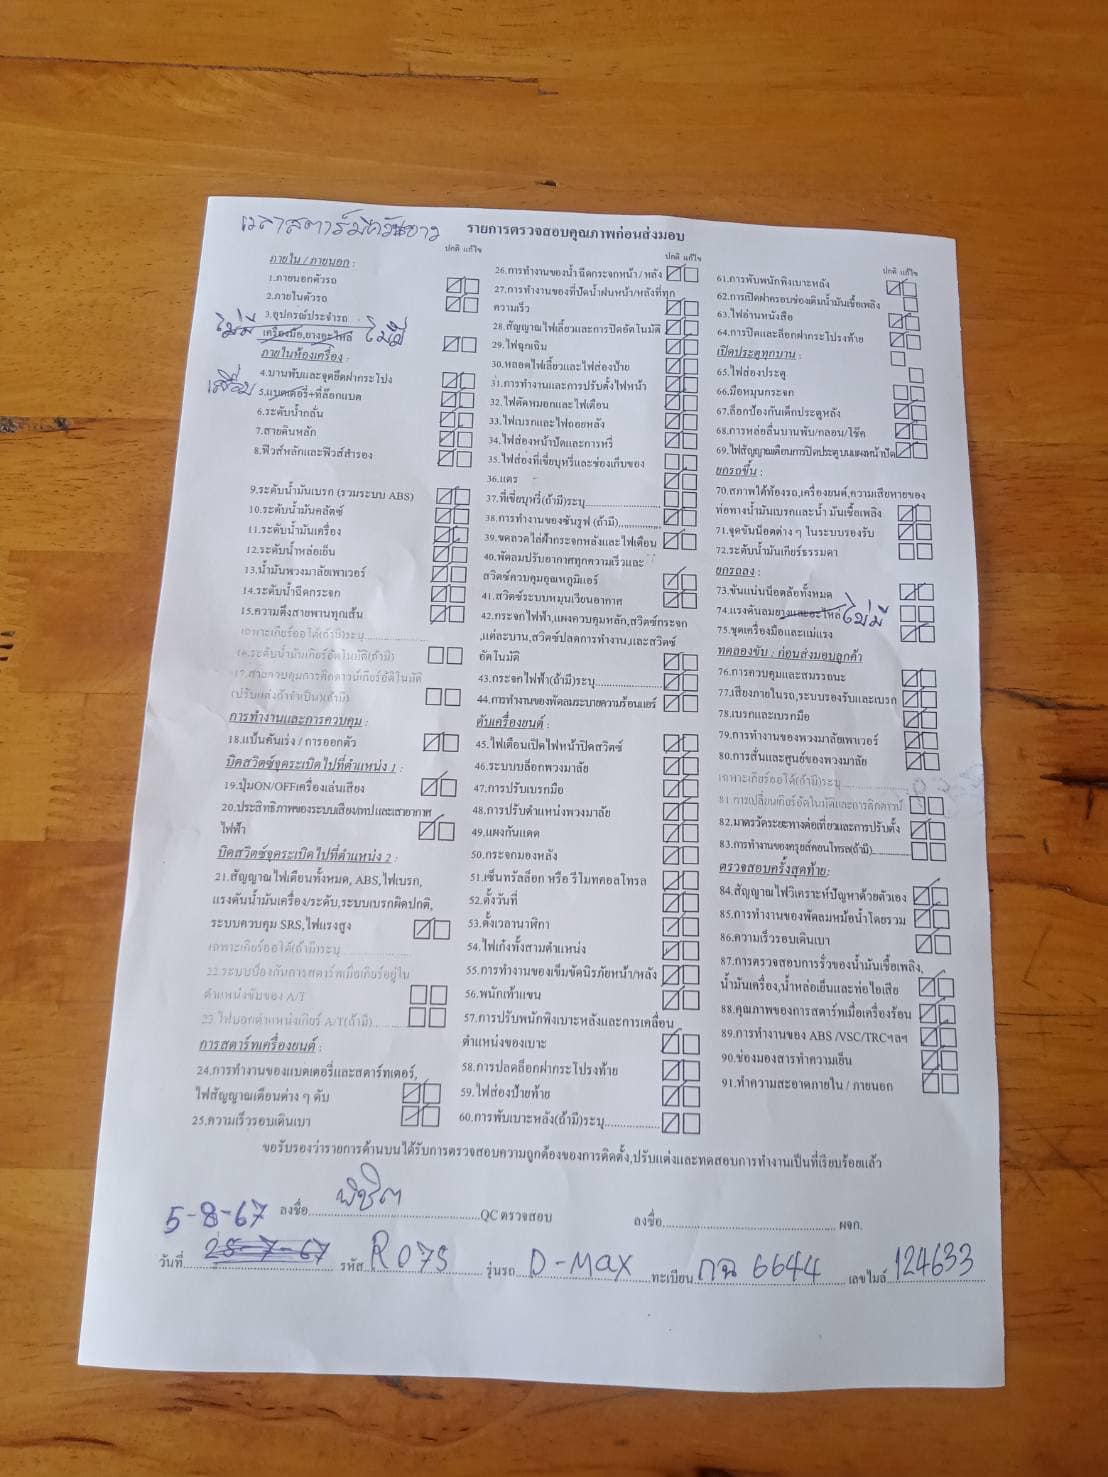 เวลาสตาร์ทมีควันขาว
รายการตรวจสอบคุณภาพก่อนส่งมอบ
ปกติ แก้ไข
ภายใน / ภายนอก :
1.ภายนอกตัวรถ
2.ภายในตัวรถ
3.อุปกรณ์ประจำรถ
ไม่มี เครื่องมือ,ยางอะไหล่ ไม่มี
ภายในห้องเครื่อง :
4.บานพับและจุดยึดฝากระโปรง
เสื่อม 5.แบตเตอรี่+ที่ล็อกแบต
6.ระดับน้ำกลั่น
7.สายดินหลัก
8.ฟิวส์หลักและฟิวส์สำรอง
9.ระดับน้ำมันเบรก (รวมระบบ ABS)
10.ระดับน้ำมันคลัตซ์
11.ระดับน้ำมันเครื่อง
12.ระดับน้ำหล่อเย็น
13.น้ำมันพวงมาลัยเพาเวอร์
14.ระดับน้ำฉีดกระจก
15.ความตึงสายพานทุกเส้น
เฉพาะเกียร์ออโต้(ถ้ามี)ระบุ
16.ระดับน้ำมันเกียร์อัตโนมัติ(ถ้ามี)
17.สายควบคุมการคิกดาวน์เกียร์อัตโนมัติ
(ปรับแต่งถ้าจำเป็น)(ถ้ามี)
การทำงานและการควบคุม :
18.แป้นคันเร่ง / การออกตัว
บิดสวิตซ์จุดระเบิดไปที่ตำแหน่ง 1 :
19.ปุ่มON/OFFเครื่องเล่นเสียง
20.ประสิทธิภาพของระบบเสียง/เทปและเสาอากาศ
ไฟฟ้า
บิดสวิตซ์จุดระเบิดไปที่ตำแหน่ง 2 :
21.สัญญาณไฟเตือนทั้งหมด, ABS,ไฟเบรก,
แรงดันน้ำมันเครื่อง/ระดับ,ระบบเบรกผิดปกติ,
ระบบควบคุม SRS,ไฟแรงสูง
เฉพาะเกียร์ออโต้(ถ้ามี)ระบุ
22.ระบบป้องกันการสตาร์ทเมื่อเกียร์อยู่ใน
ตำแหน่งขับของ A/T
23.ไฟบอกตำแหน่งเกียร์ A/T(ถ้ามี)
การสตาร์ทเครื่องยนต์ :
24.การทำงานของแบตเตอรี่และสตาร์ทเตอร์,
ไฟสัญญาณเตือนต่าง ๆ ดับ
25.ความเร็วรอบเดินเบา
ปกติ แก้ไข
26.การทำงานของน้ำ ฉีดกระจกหน้า / หลัง
27.การทำงานของที่ปัดน้ำฝนหน้า/หลังที่ทุก
ความเร็ว
28.สัญญาณไฟเลี้ยวและการปิดอัตโนมัติ
29.ไฟฉุกเฉิน
30.หลอดไฟเลี้ยวและไฟส่องป้าย
31.การทำงานและการปรับตั้งไฟหน้า
32.ไฟตัดหมอกและไฟเตือน
33.ไฟเบรกและไฟถอยหลัง
34.ไฟส่องหน้าปัดและการหรี่
35.ไฟส่องที่เขี่ยบุหรี่และช่องเก็บของ
36.แตร
37.ที่เขี่ยบุหรี่(ถ้ามี)ระบุ
38.การทำงานของซันรูฟ (ถ้ามี)
39.ขดลวดไล่ฝ้ากระจกหลังและไฟเตือน
40.พัดลมปรับอากาศทุกความเร็วและ
สวิตซ์ควบคุมอุณหภูมิแอร์
41.สวิตซ์ระบบหมุนเวียนอากาศ
42.กระจกไฟฟ้า,แผงควบคุมหลัก,สวิตซ์กระจก
แต่ละบาน,สวิตซ์ปลดการทำงาน,และสวิตซ์
อัตโนมัติ
43.กระจกไฟฟ้า(ถ้ามี)ระบุ
44.การทำงานของพัดลมระบายความร้อนแอร์
ดับเครื่องยนต์ :
45.ไฟเตือนเปิดไฟหน้าปิดสวิตซ์
46.ระบบล็อกพวงมาลัย
47.การปรับเบรกมือ
48.การปรับตำแหน่งพวงมาลัย
49.แผงกันแดด
50.กระจกมองหลัง
51.เซ็นทรัลล็อก หรือ รีโมทคอลโทรล
52.ตั้งวันที่
53.ตั้งเวลานาฬิกา
54.ไฟเก๋งทั้งสามตำแหน่ง
55.การทำงานของเข็มขัดนิรภัยหน้า/หลัง
56.พนักเท้าแขน
57.การปรับพนักพิงเบาะหลังและการเคลื่อน
ตำแหน่งของเบาะ
58.การปลดล็อกฝากระโปรงท้าย
59.ไฟส่องป้ายท้าย
60.การพับเบาะหลัง(ถ้ามี)ระบุ
ปกติ แก้ไข
61.การพับพนักพิงเบาะหลัง
62.การเปิดฝาครอบช่องเติมน้ำมันเชื้อเพลิง
63.ไฟอ่านหนังสือ
64.การปิดและล็อกฝากระโปรงท้าย
เปิดประตูทุกบาน :
65.ไฟส่องประตู
66.มือหมุนกระจก
67.ล็อกป้องกันเด็กประตูหลัง
68.การหล่อลื่นบานพับ/กลอน/โช๊ค
69.ไฟสัญญาณเตือนการปิดประตูบนแผงหน้าปัด
ยกรถขึ้น :
70.สภาพใต้ท้องรถ,เครื่องยนต์,ความเสียหายของ
ท่อทางน้ำมันเบรกและน้ำ มันเชื้อเพลิง
71.จุดขันน็อตต่าง ๆ ในระบบรองรับ
72.ระดับน้ำมันเกียร์ธรรมดา
ยกรถลง :
73.ขันแน่นน็อตล้อทั้งหมด
74.แรงดันลมยางและอะไหล่ ไม่มี
75.ชุดเครื่องมือและแม่แรง
ทดลองขับ : ก่อนส่งมอบลูกค้า
76.การควบคุมและสมรรถนะ
77.เสียงภายในรถ,ระบบรองรับและเบรก
78.เบรกและเบรกมือ
79.การทำงานของพวงมาลัยเพาเวอร์
80.การสั่นและศูนย์ของพวงมาลัย
เฉพาะเกียร์ออโต้(ถ้ามี)ระบุ
81.การเปลี่ยนเกียร์อัตโนมัติและการคิกดาวน์
82.มาตรวัดระยะทางต่อเที่ยวและการปรับตั้ง
83.การทำงานของครุยส์คอนโทรล(ถ้ามี)
ตรวจสอบครั้งสุดท้าย:
84.สัญญาณไฟวิเคราะห์ปัญหาด้วยตัวเอง
85.การทำงานของพัดลมหม้อน้ำโดยรวม
86.ความเร็วรอบเดินเบา
87.การตรวจสอบการรั่วของน้ำมันเชื้อเพลิง,
น้ำมันเครื่อง,น้ำหล่อเย็นและท่อไอเสีย
88.คุณภาพของการสตาร์ทเมื่อเครื่องร้อน
89.การทำงานของ ABS /VSC/TRCฯลฯ
90.ช่องมองสารทำความเย็น
91.ทำความสะอาดภายใน / ภายนอก
ขอรับรองว่ารายการด้านบนได้รับการตรวจสอบความถูกต้องของการติดตั้ง,ปรับแต่งและทดสอบการทำงานเป็นที่เรียบร้อยแล้ว
5-8-67 ลงชื่อ พิชิต QC ตรวจสอบ ลงชื่อ ผจก.
วันที่ 25-7-67 รหัส R075 รุ่นรถ D-MAX ทะเบียน กฉ 6644 เลขไมล์ 124633